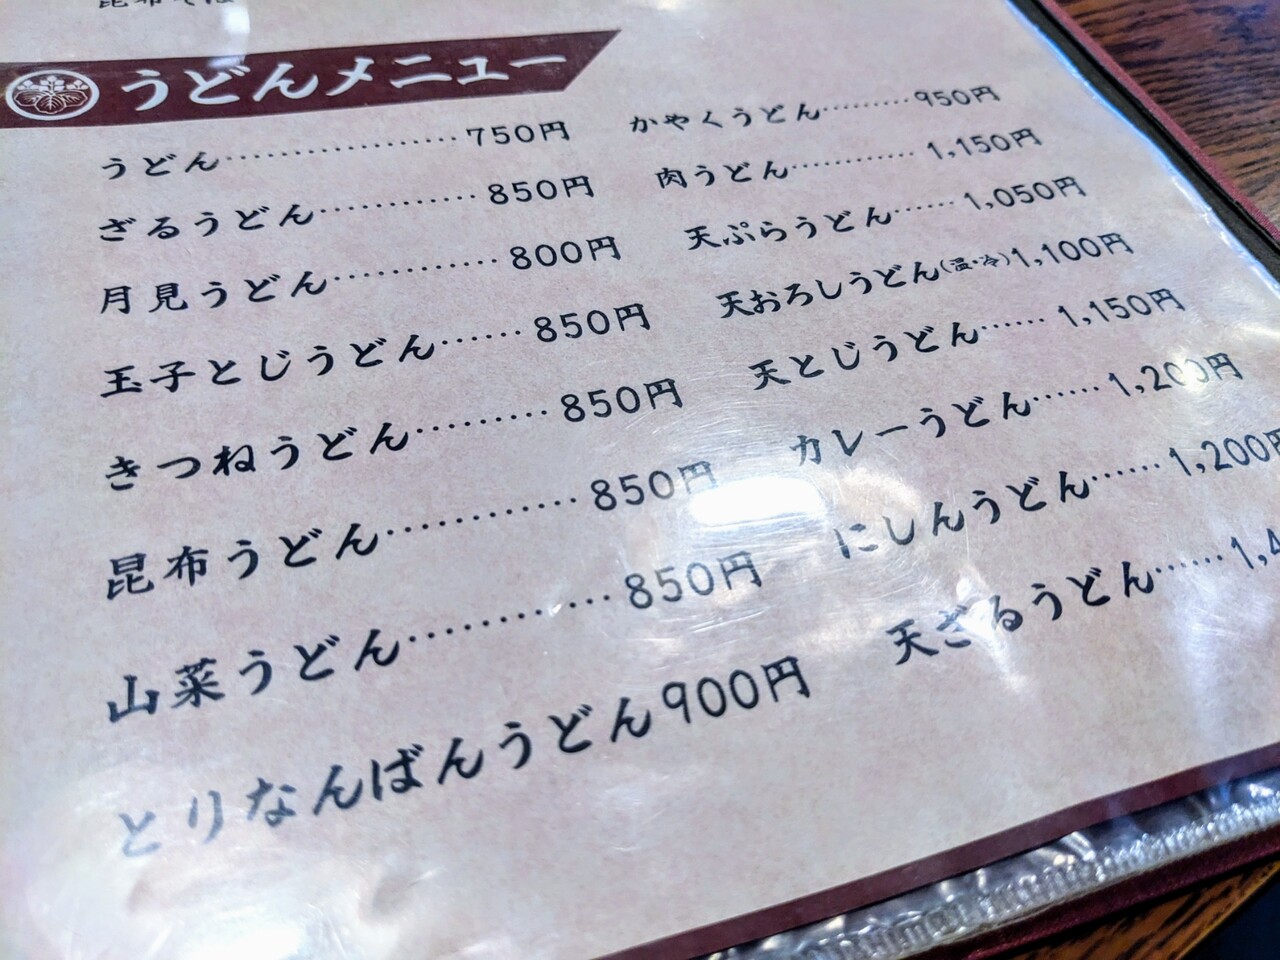 うどんメニュー
うどん………………750円
ざるうどん…………850円
月見うどん…………800円
玉子とじうどん……850円
きつねうどん………850円
昆布うどん…………850円
山菜うどん…………850円
とりなんばんうどん900円
かやくうどん………950円
肉うどん…………1,150円
天ぷらうどん……1,050円
天おろしうどん(温・冷)1,100円
天とじうどん……1,150円
カレーうどん……1,200円
にしんうどん……1,200円
天ざるうどん……